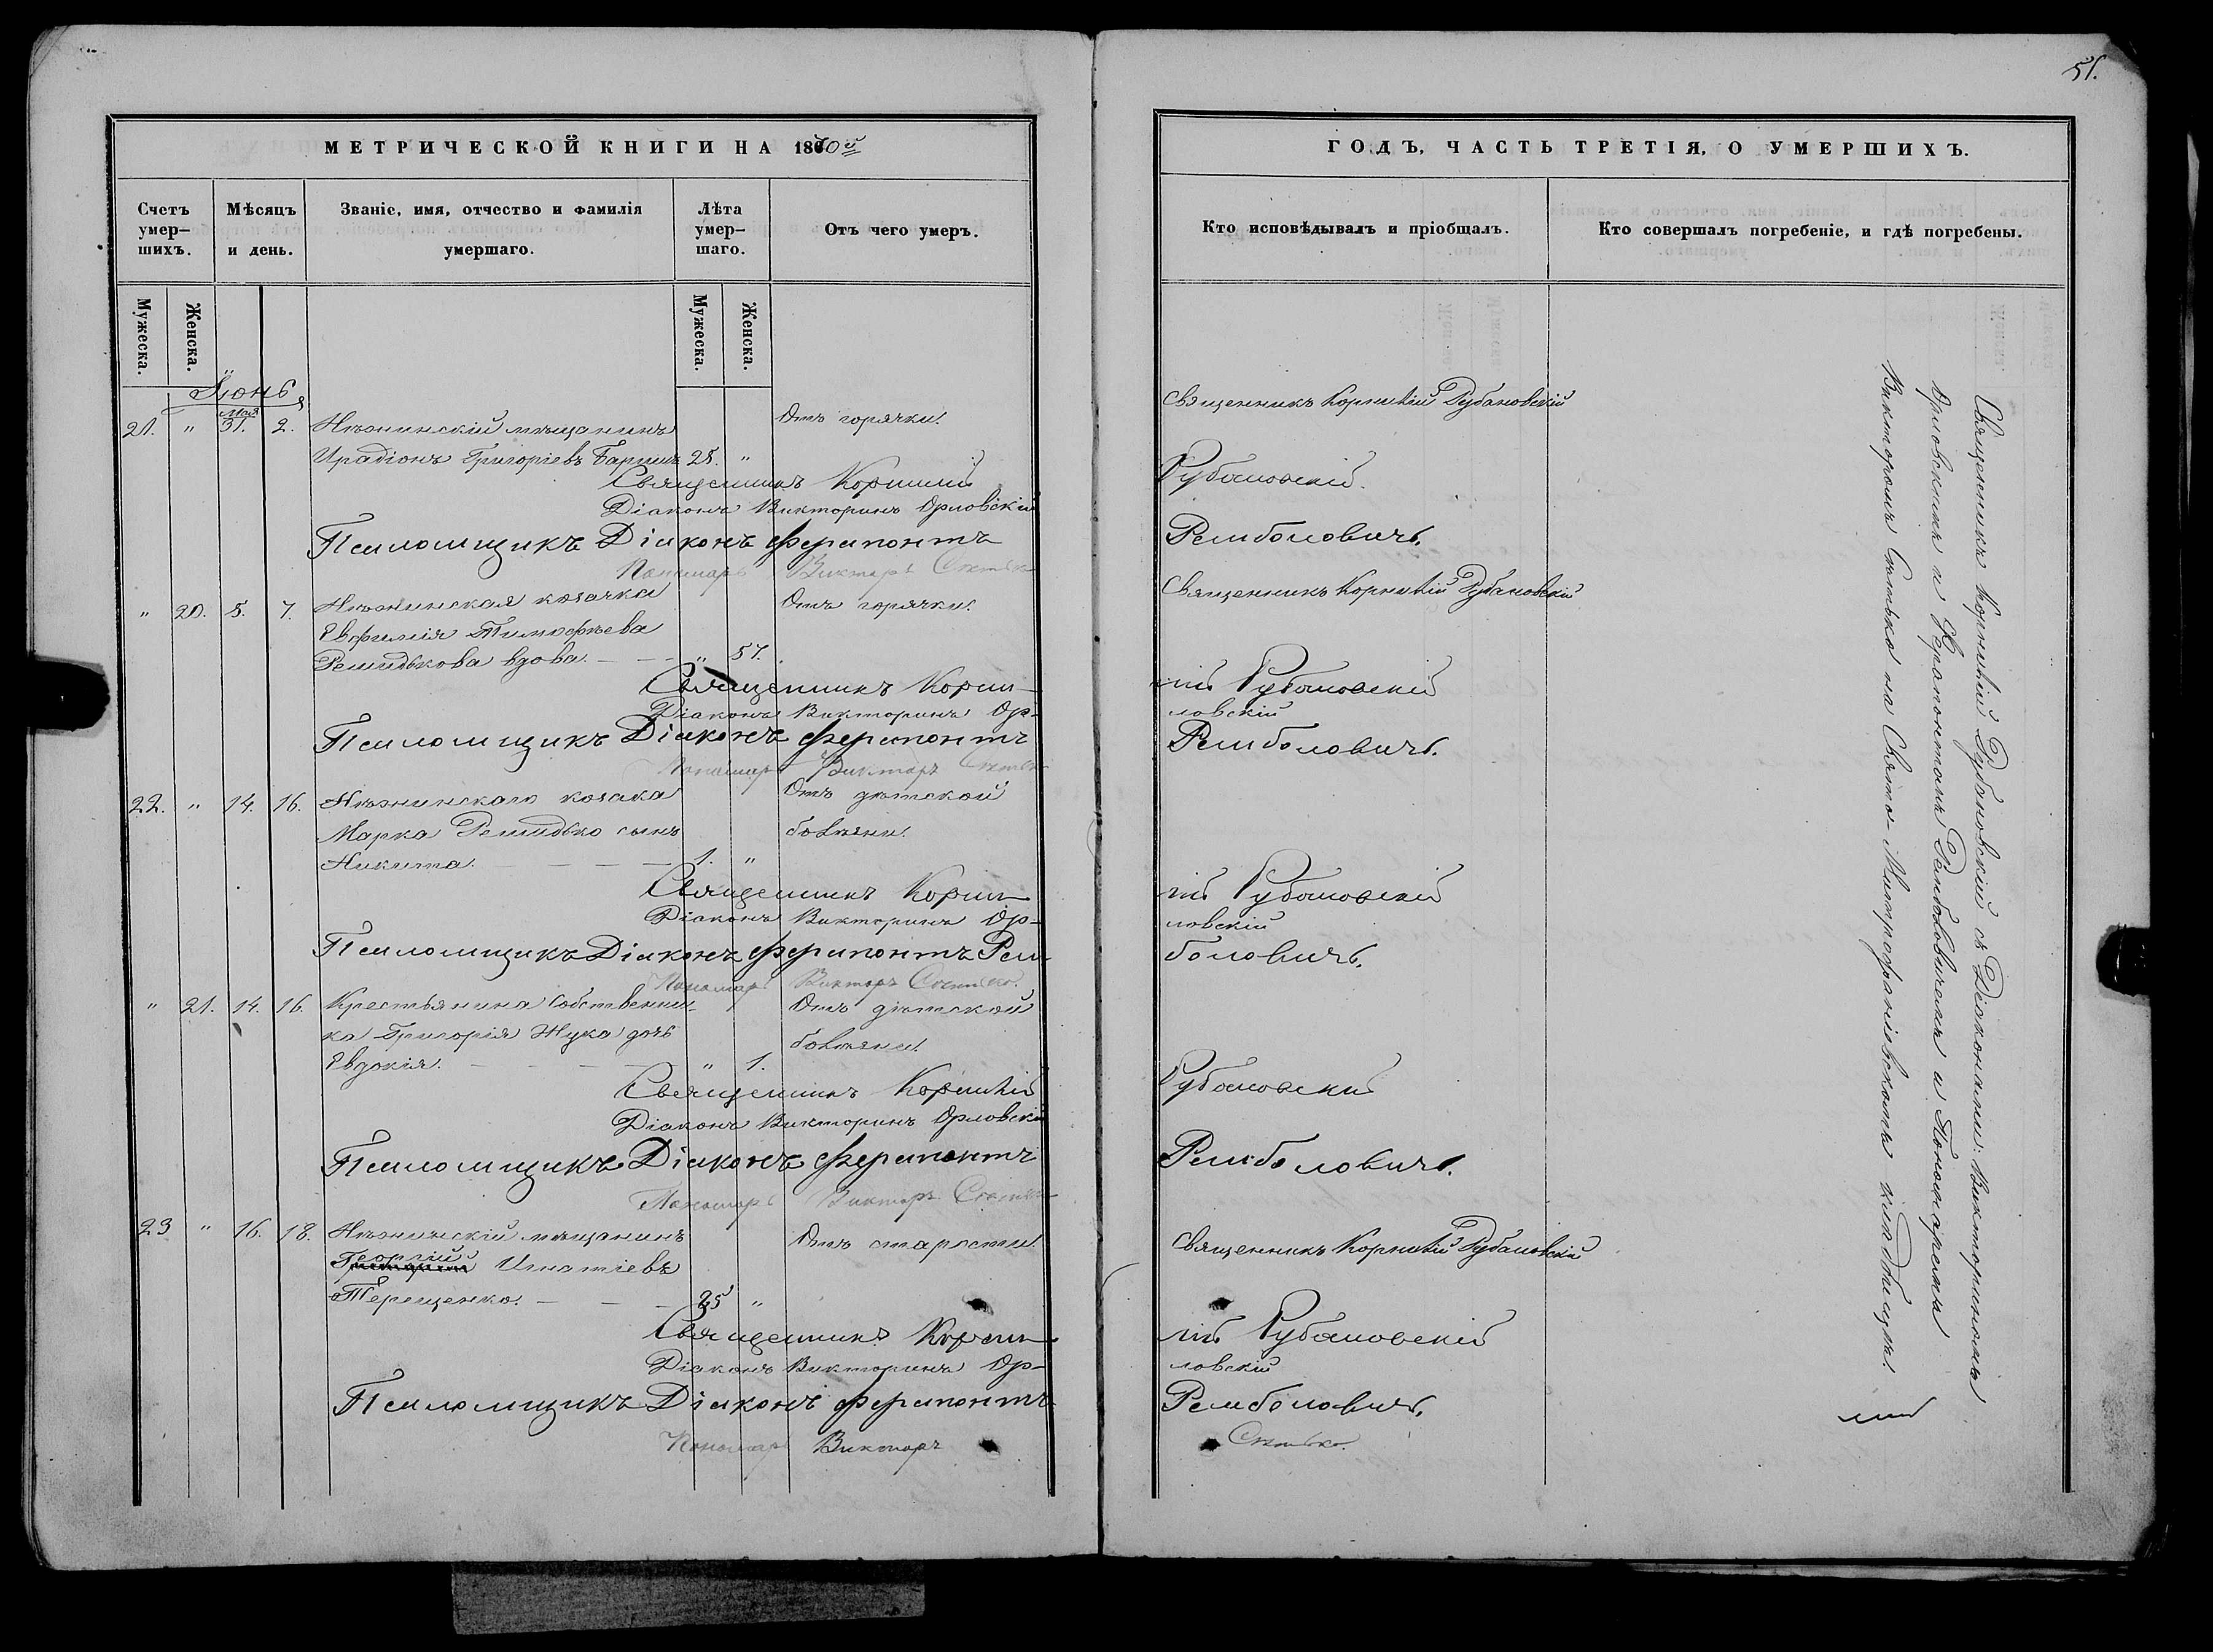 51.
МЕТРИЧЕСКОЙ КНИГИ НА 1870й
Счетъ умер-шихъ.
Мѣсяцъ и день.
Званіе, имя, отчество и фамилія умершаго.
Лѣта умер-шаго.
Отъ чего умеръ.
Мужеска.
Женска.
Мужеска.
Женска.
Іюнь
21. " Мая 31. 2. Нѣжинскій мѣщанинъ Отъ горячки.
Иродіонъ Григоріевъ 28. "
Священникъ Корнилій
Діаконъ Викторинъ Орловскій
Псаломщикъ Діаконъ Ферапонтъ
Пономарь Викторъ
" 20. 5. 7. Нѣжинская козачка Отъ горячки.
Евфимія Тимофѣева
вдова. — — " 57.
Священникъ Корни-
Діаконъ Викторинъ Ор-
Псаломщикъ Діаконъ Ферапонтъ
Пономарь Викторъ
22. " 14. 16. Нѣжинскаго козака Отъ дѣтской
Марка сынъ болѣзни.
Никита. — — — — 1. "
Священникъ Корни-
Діаконъ Викторинъ Ор-
Псаломщикъ Діаконъ Ферапонтъ Рем-
Пономарь Викторъ
" 21. 14. 16. Крестьянина собственни- Отъ дѣтской
ка Григорія Жука дочь болѣзни.
Евдокія. — — — — " 1.
Священникъ Корнилій
Діаконъ Викторинъ Орловскій
Псаломщикъ Діаконъ Ферапонтъ
Пономарь Викторъ
23 " 16. 18. Нѣжинскій мѣщанинъ Отъ старости.
Георгій Игнатіевъ
Терещенко. — — — "
Священникъ Корни-
Діаконъ Викторинъ Ор-
Псаломщикъ Діаконъ Ферапонтъ
Пономарь Викторъ
ГОДЪ, ЧАСТЬ ТРЕТІЯ, О УМЕРШИХЪ.
Кто исповѣдывалъ и пріобщалъ.
Кто совершалъ погребеніе, и гдѣ погребены.
Священникъ Корнилій Рубановскій
Рубановскій.
Ремболовичъ.
Священникъ Корнилій Рубановскій
лій Рубановскій
ловскій
Ремболовичъ.
лій Рубановскій
ловскій
боловичъ.
Рубановскій
Ремболовичъ.
Священникъ Корнилій Рубановскій
лій Рубановскій
ловскій
Ремболовичъ.
Священникъ Корнилій Рубановскій съ Діаконами: Викториномъ
Орловскимъ и Ферапонтомъ и Пономаремъ
Викторомъ на Свято-Митрофаніевскомъ кладбищѣ.